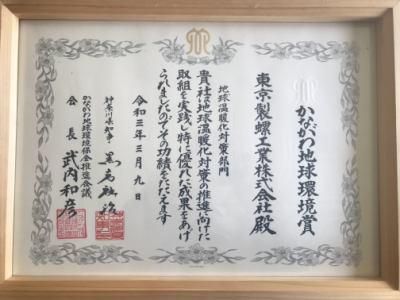 かながわ地球環境賞
東京製螺工業株式会社殿
地球温暖化対策部門
貴社は地球温暖化対策の推進に向けた
取組を実践し特に優れた成果をあげ
られましたのでその功績をたたえます
令和三年三月九日
神奈川県知事 黒岩祐治
かながわ地球環境保全推進会議
会長 武内和彦